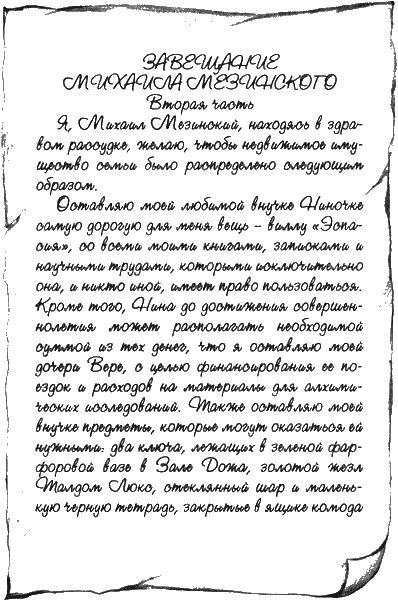 ЗАВЕЩАНИЕ
МИХАИЛА МЕЗИНСКОГО
Вторая часть
Я, Михаил Мезинский, находясь в здра-
вом рассудке, желаю, чтобы недвижимое иму-
щество семьи было распределено следующим
образом.
Оставляю моей любимой внучке Ниночке
самую дорогую для меня вещь – виллу «Эспа-
сия», со всеми моими книгами, записками и
научными трудами, которыми исключительно
она, и никто иной, имеет право пользоваться.
Кроме того, Нина до достижения совершен-
нолетия может располагать необходимой
суммой из тех денег, что я оставляю моей
дочери Вере, с целью финансирования ее по-
ездок и расходов на материалы для алхими-
ческих исследований. Также оставляю моей
внучке предметы, которые могут оказаться ей
нужными: два ключа, лежащих в зеленой фар-
форовой вазе в Зале Дожа, золотой жезл
Талдом Люкс, стеклянный шар и малень-
кую черную тетрадь, закрытые в ящике комода